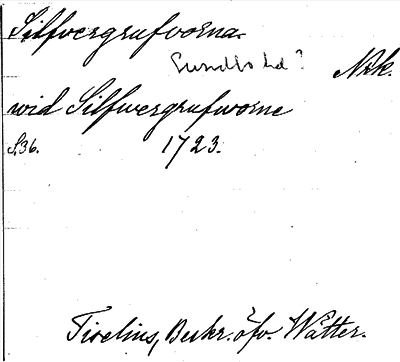 Silfvergrufvorna.
Sundbo hd?
Nrk.
wid Silfwergrufworne
S. 36. 1723.
Tiselius, Beskr. öfv. Wätter.